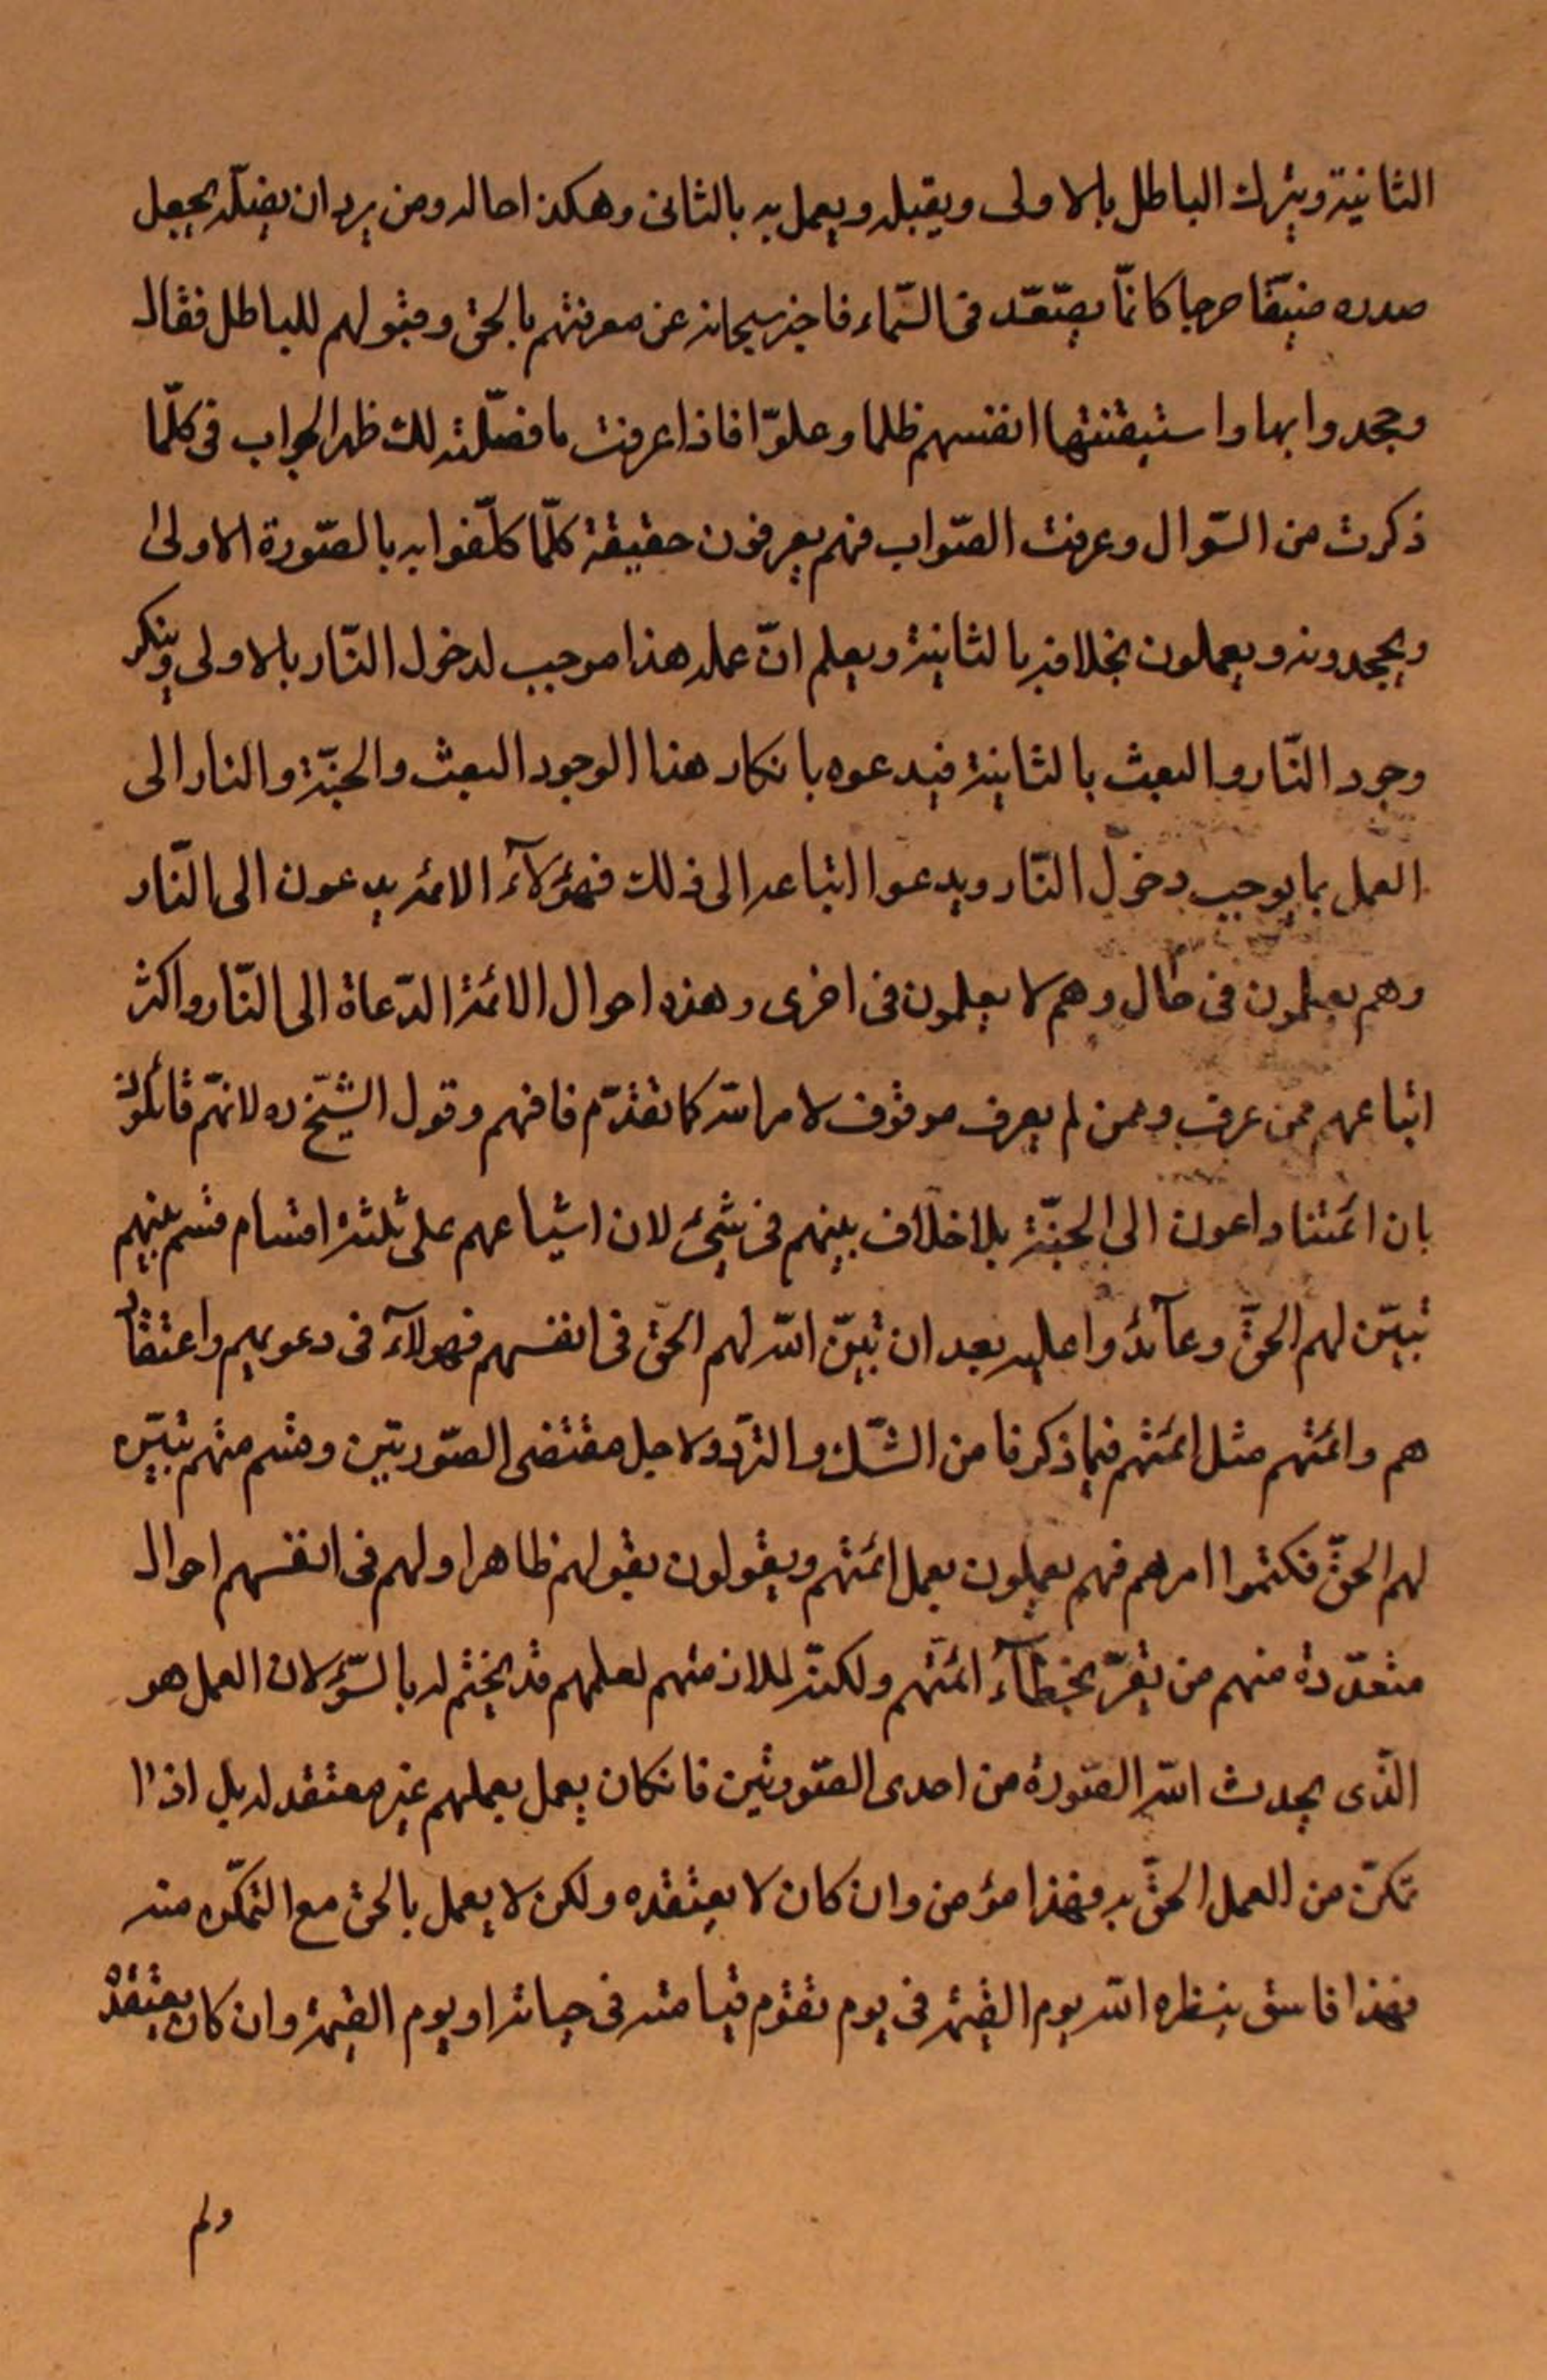 الثانية ويترك الباطل بالاولى ويقبله ويعمل به بالثانى وهكذا حاله ومن يرد ان يضلّه يجعل
صدره ضيّقا حرجا كانّما يصّعّد فى السّماء فاخبر سبحانه عن معرفتهم بالحق وقبولهم للباطل فقال
وجحدوا بها واستيقنتها انفسهم ظلما وعلوّا فاذا عرفت ما فصّلته لك ظهر الجواب فى كلّما
ذكرت من السّوال وعرفت الصّواب فهم يعرفون حقيقة كلّما كلّفوا به بالصّورة الاولى
ويجحدونه ويعملون بخلافه بالثانية ويعلم انّ عمله هذا موجب لدخول النّار بالاولى وينكر
وجود النّار والبعث بالثانية فيدعوه بانكار هذا الوجود البعث والجنّة والنار الى
العمل بما يوجب دخول النّار ويدعوا اتباعه الى ذلك فهؤلآء الائمه يدعون الى النّار
وهم يعلمون فى حال وهم لا يعلمون فى اخرى وهذه احوال الائمة الدّعاة الى النّار واكثر
اتباعهم ممن عرف وممن لم يعرف موقوف لامر الله كما تقدّم فافهم وقول الشّيخ ره لانهّم قائلون
بان ائمتنا داعون الى الجنّة بلا خلاف بينهم فى شئ لان اشياعهم على ثلثة اقسام قسم منهم
تبيّن لهم الحقّ وعآندوا عليه بعد ان تبيّن الله لهم الحقّ فى انفسهم فهولآء فى دعويهم واعتقاد
هم وائمّتهم مثل ائمّتهم فيما ذكرنا من الشّك والتردّد لاجل مقتضى الصّورتين وقسم منهم تبيّن
لهم الحقّ فكتموا امرهم فهم يعملون بعمل ائمّتهم ويقولون بقولهم ظاهرا ولهم فى انفسهم احوال
متعدّدة منهم من يقرّ بخطآء ائمّتهم ولكنّه لملازمتهم لعلمهم قد يختم له بالسّوء لان العمل هو
الّذى يحدث الله الصّورة من احدى الصّورتين فانكان يعمل بعملهم غير معتقد له بل اذا
تمكنّ من العمل الحقّ به فهذا مؤمن وان كان لا يعتقده ولكن لا يعمل بالحق مع التمكّن منه
فهذا فاسق ينظره الله يوم القيمة فى يوم تقوم قيامته فى حياته او يوم القيمة وان كان يعتقد
ولم